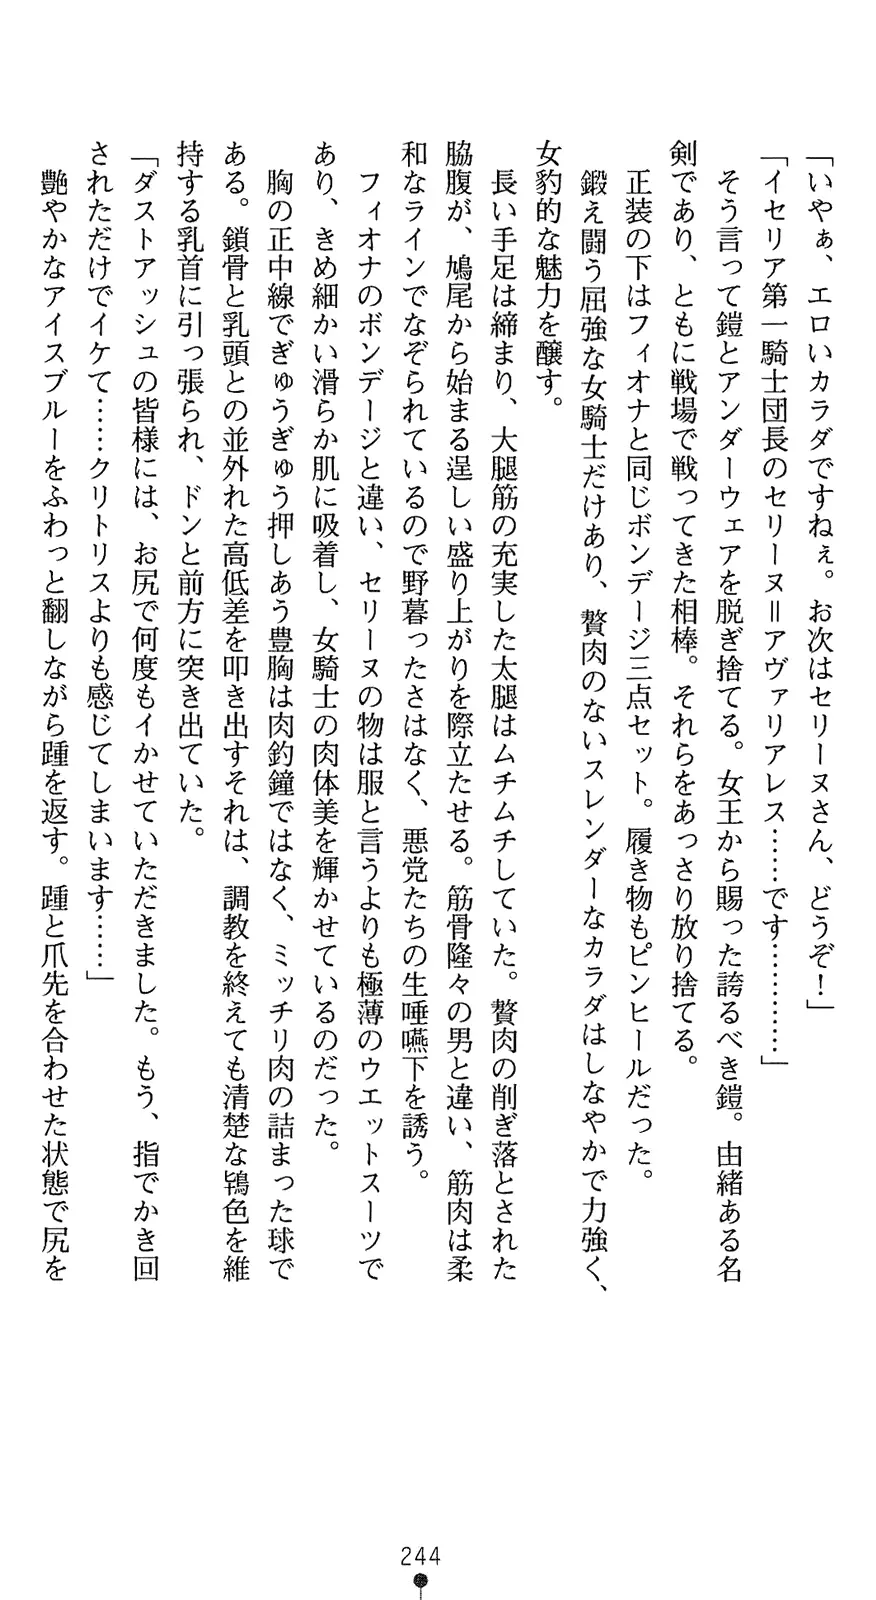 「いやぁ、エロいカラダですねぇ。お次はセリーヌさん、どうぞ！」
「イセリア第一騎士団長のセリーヌ＝アヴァリアレス……です…………」
　そう言って鎧とアンダーウェアを脱ぎ捨てる。女王から賜った誇るべき鎧。由緒ある名
剣であり、ともに戦場で戦ってきた相棒。それらをあっさり放り捨てる。
　正装の下はフィオナと同じボンデージ三点セット。履き物もピンヒールだった。
　鍛え闘う屈強な女騎士だけあり、贅肉のないスレンダーなカラダはしなやかで力強く、
女豹的な魅力を醸す。
　長い手足は締まり、大腿筋の充実した太腿はムチムチしていた。贅肉の削ぎ落とされた
脇腹が、鳩尾から始まる逞しい盛り上がりを際立たせる。筋骨隆々の男と違い、筋肉は柔
和なラインでなぞられているので野暮ったさはなく、悪党たちの生唾嚥下を誘う。
　フィオナのボンデージと違い、セリーヌの物は服と言うよりも極薄のウエットスーツで
あり、きめ細かい滑らか肌に吸着し、女騎士の肉体美を輝かせているのだった。
　胸の正中線でぎゅうぎゅう押しあう豊胸は肉釣鐘ではなく、ミッチリ肉の詰まった球で
ある。鎖骨と乳頭との並外れた高低差を叩き出すそれは、調教を終えても清楚な鴇色を維
持する乳首に引っ張られ、ドンと前方に突き出ていた。
「ダストアッシュの皆様には、お尻で何度もイかせていただきました。もう、指でかき回
されただけでイケて……クリトリスよりも感じてしまいます……」
　艶やかなアイスブルーをふわっと翻しながら踵を返す。踵と爪先を合わせた状態で尻を
244